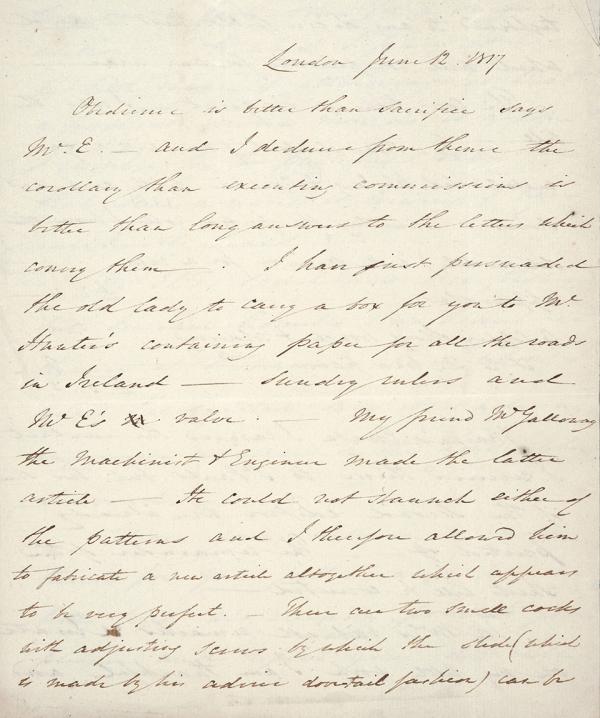 London June 12. 1817
Obedience is better than sacrifice says
Mr. E. — and I deduce from thence the
corollary than executing commissions is
better than long answers to the letters which
convey them . I have just persuaded
the old lady to carry a box for you to Mr.
Hunter's containing paper for all the roads
in Ireland — sundry rulers and
Mr E's valve. — My friend Mr Galloway
the Machinist & Engineer made the latter
article — He could not staunch either of
the patterns and I therefore allowed him
to fabricate a new article altogether which appears
to be very perfect. — There are two small cocks
with adjusting screws by which the slide (which
is made by his advice dovetail fashion) can be